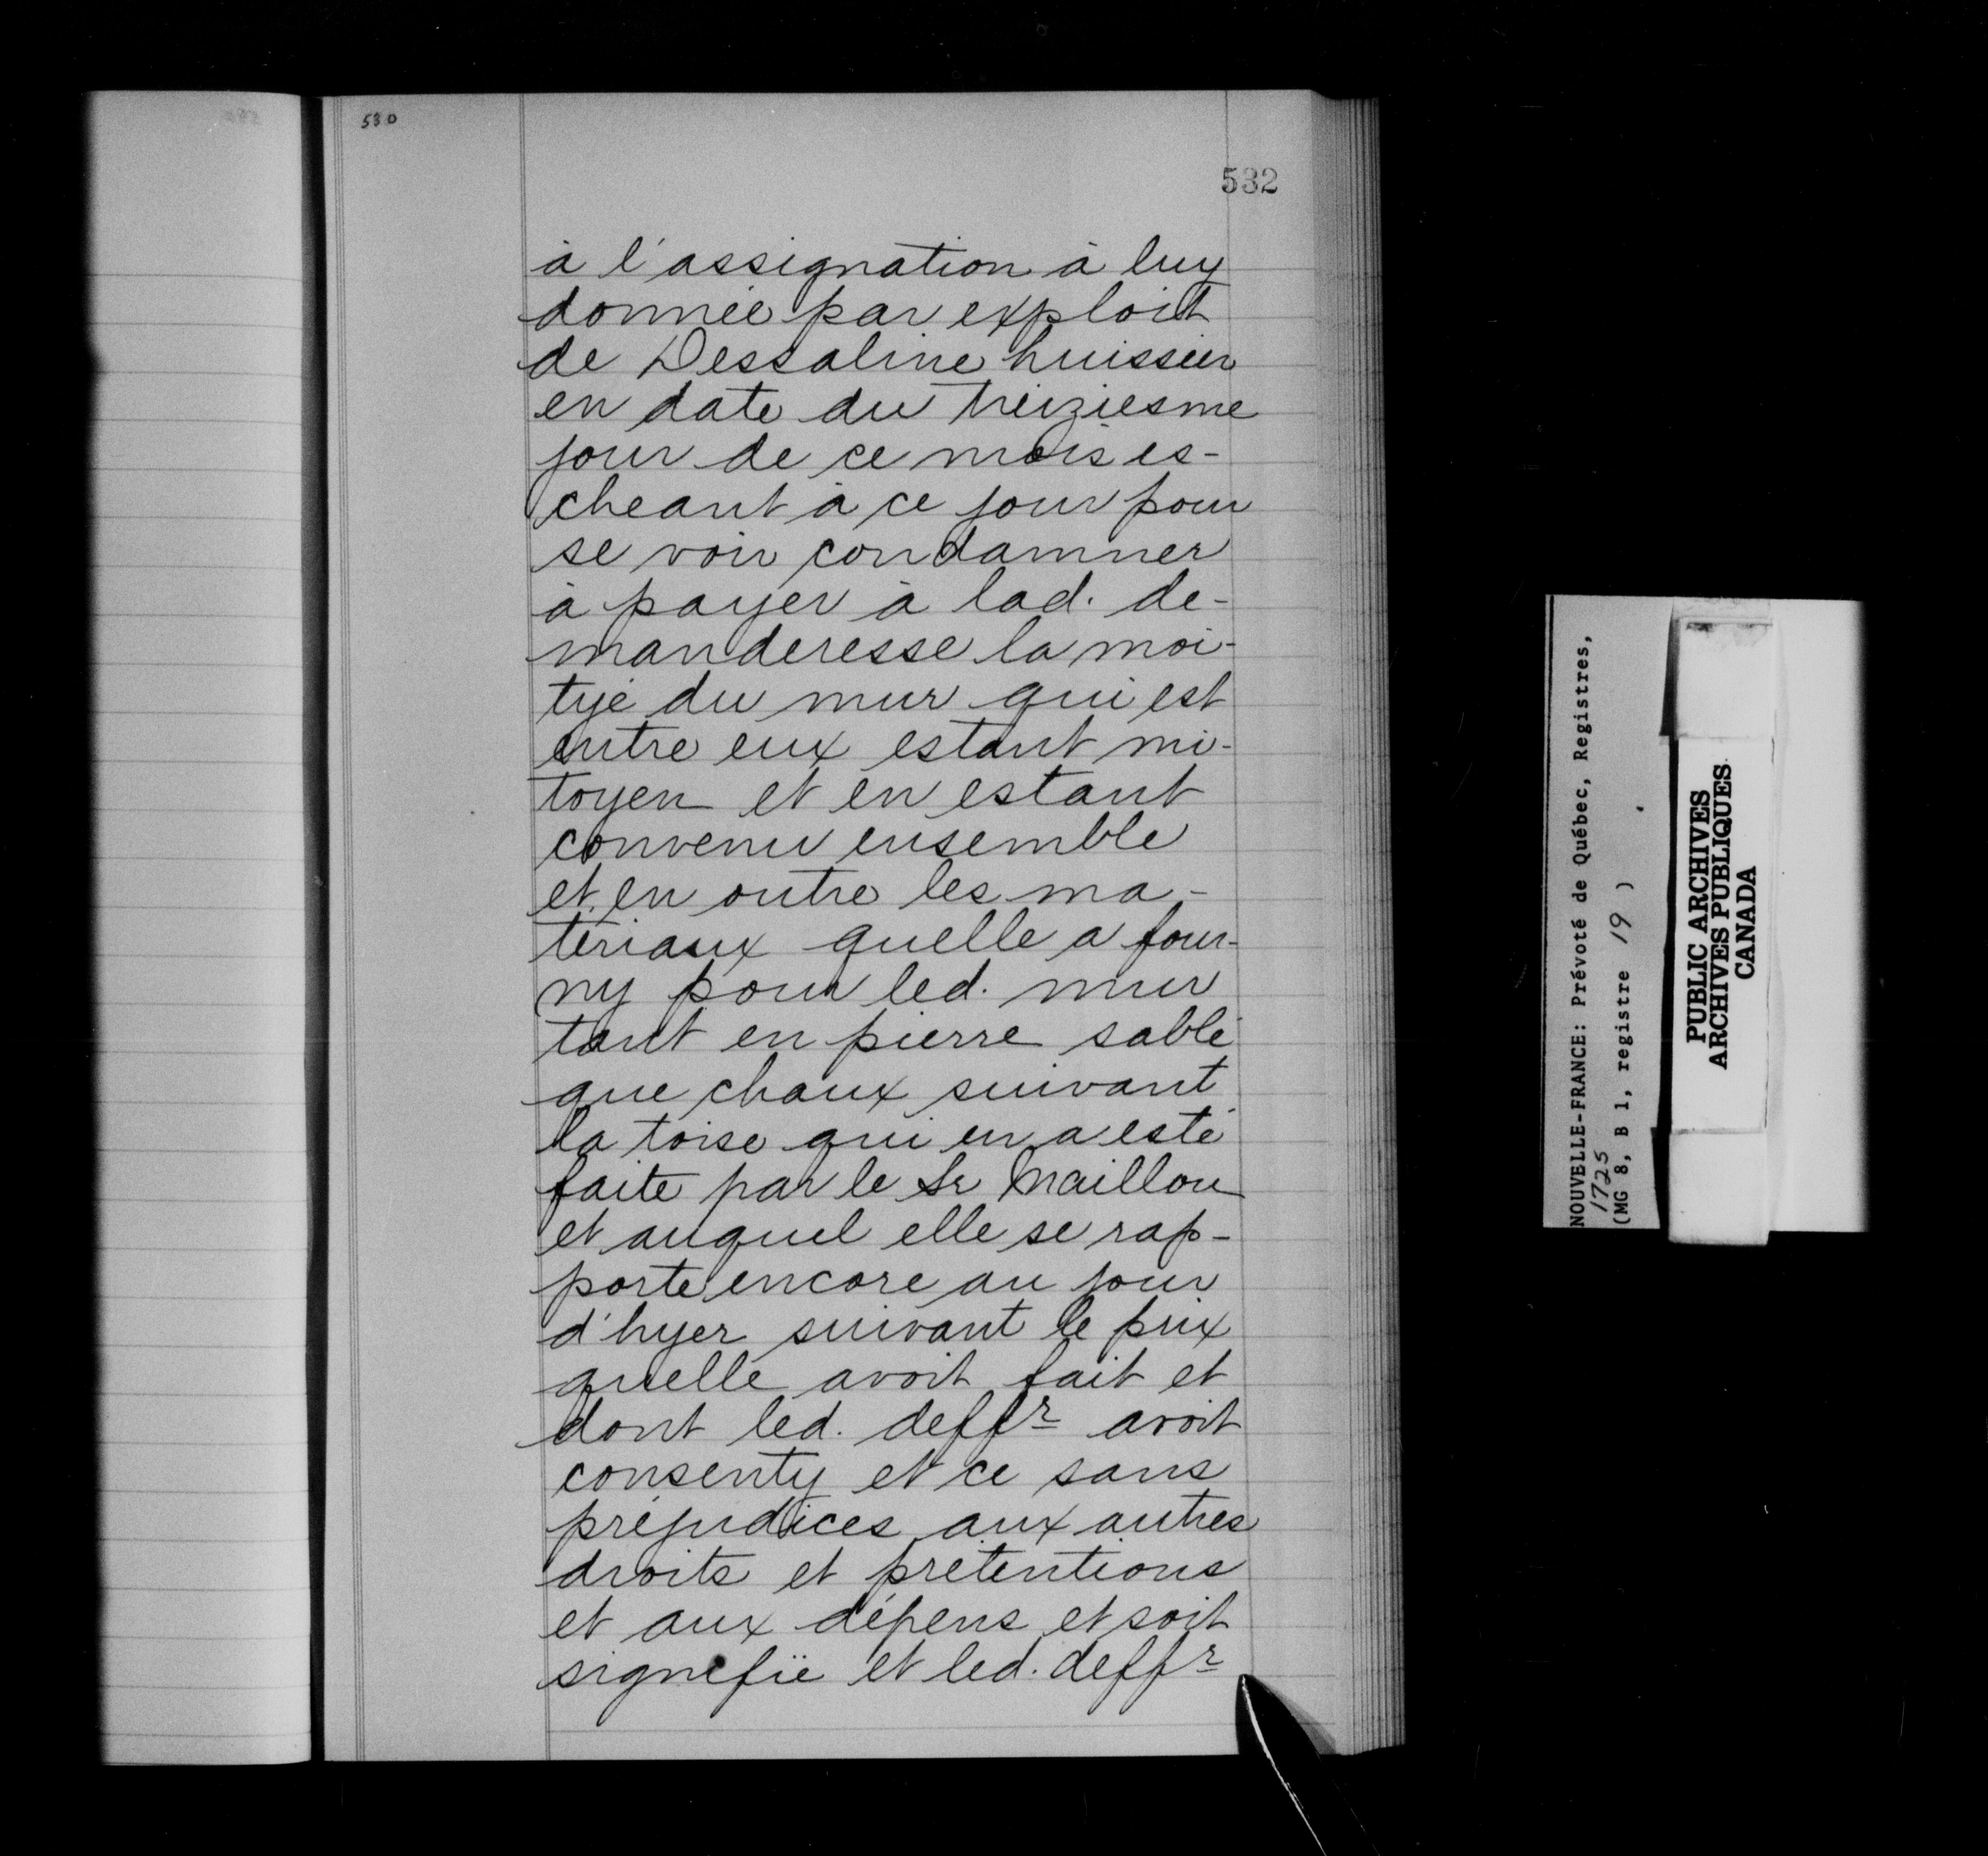 580
532
à l'assignation à luy
donnée par exploit
de Dessaline huissier
en date du treiziesme
jour de ce mois es-
cheant à ce jour pour
se voir condamner
à payer à lad. de-
manderesse la moi-
tyé du mur qui est
entre eux estant mi-
toyen et en estant
convenu ensemble
et en outre les ma-
teriaux quelle a four-
ny pour led. mur
tant en pierre sable
que chaux suivant
la toise qui en a esté
faite par le Sr Maillou
et auquel elle se rap-
porte encore au jour
d'hyer suivant le prix
quelle avoit fait et
dont led. deffr avoit
consenty et ce sans
préjudices aux autres
droits et prétentions
et aux dépens et soit
signefïe et led. deffr
NOUVELLE-FRANCE: Prévoté de Québec, Registres,
1725
(MG 8, B 1, registre 19 ) .
PUBLIC ARCHIVES
ARCHIVES PUBLIQUES
CANADA